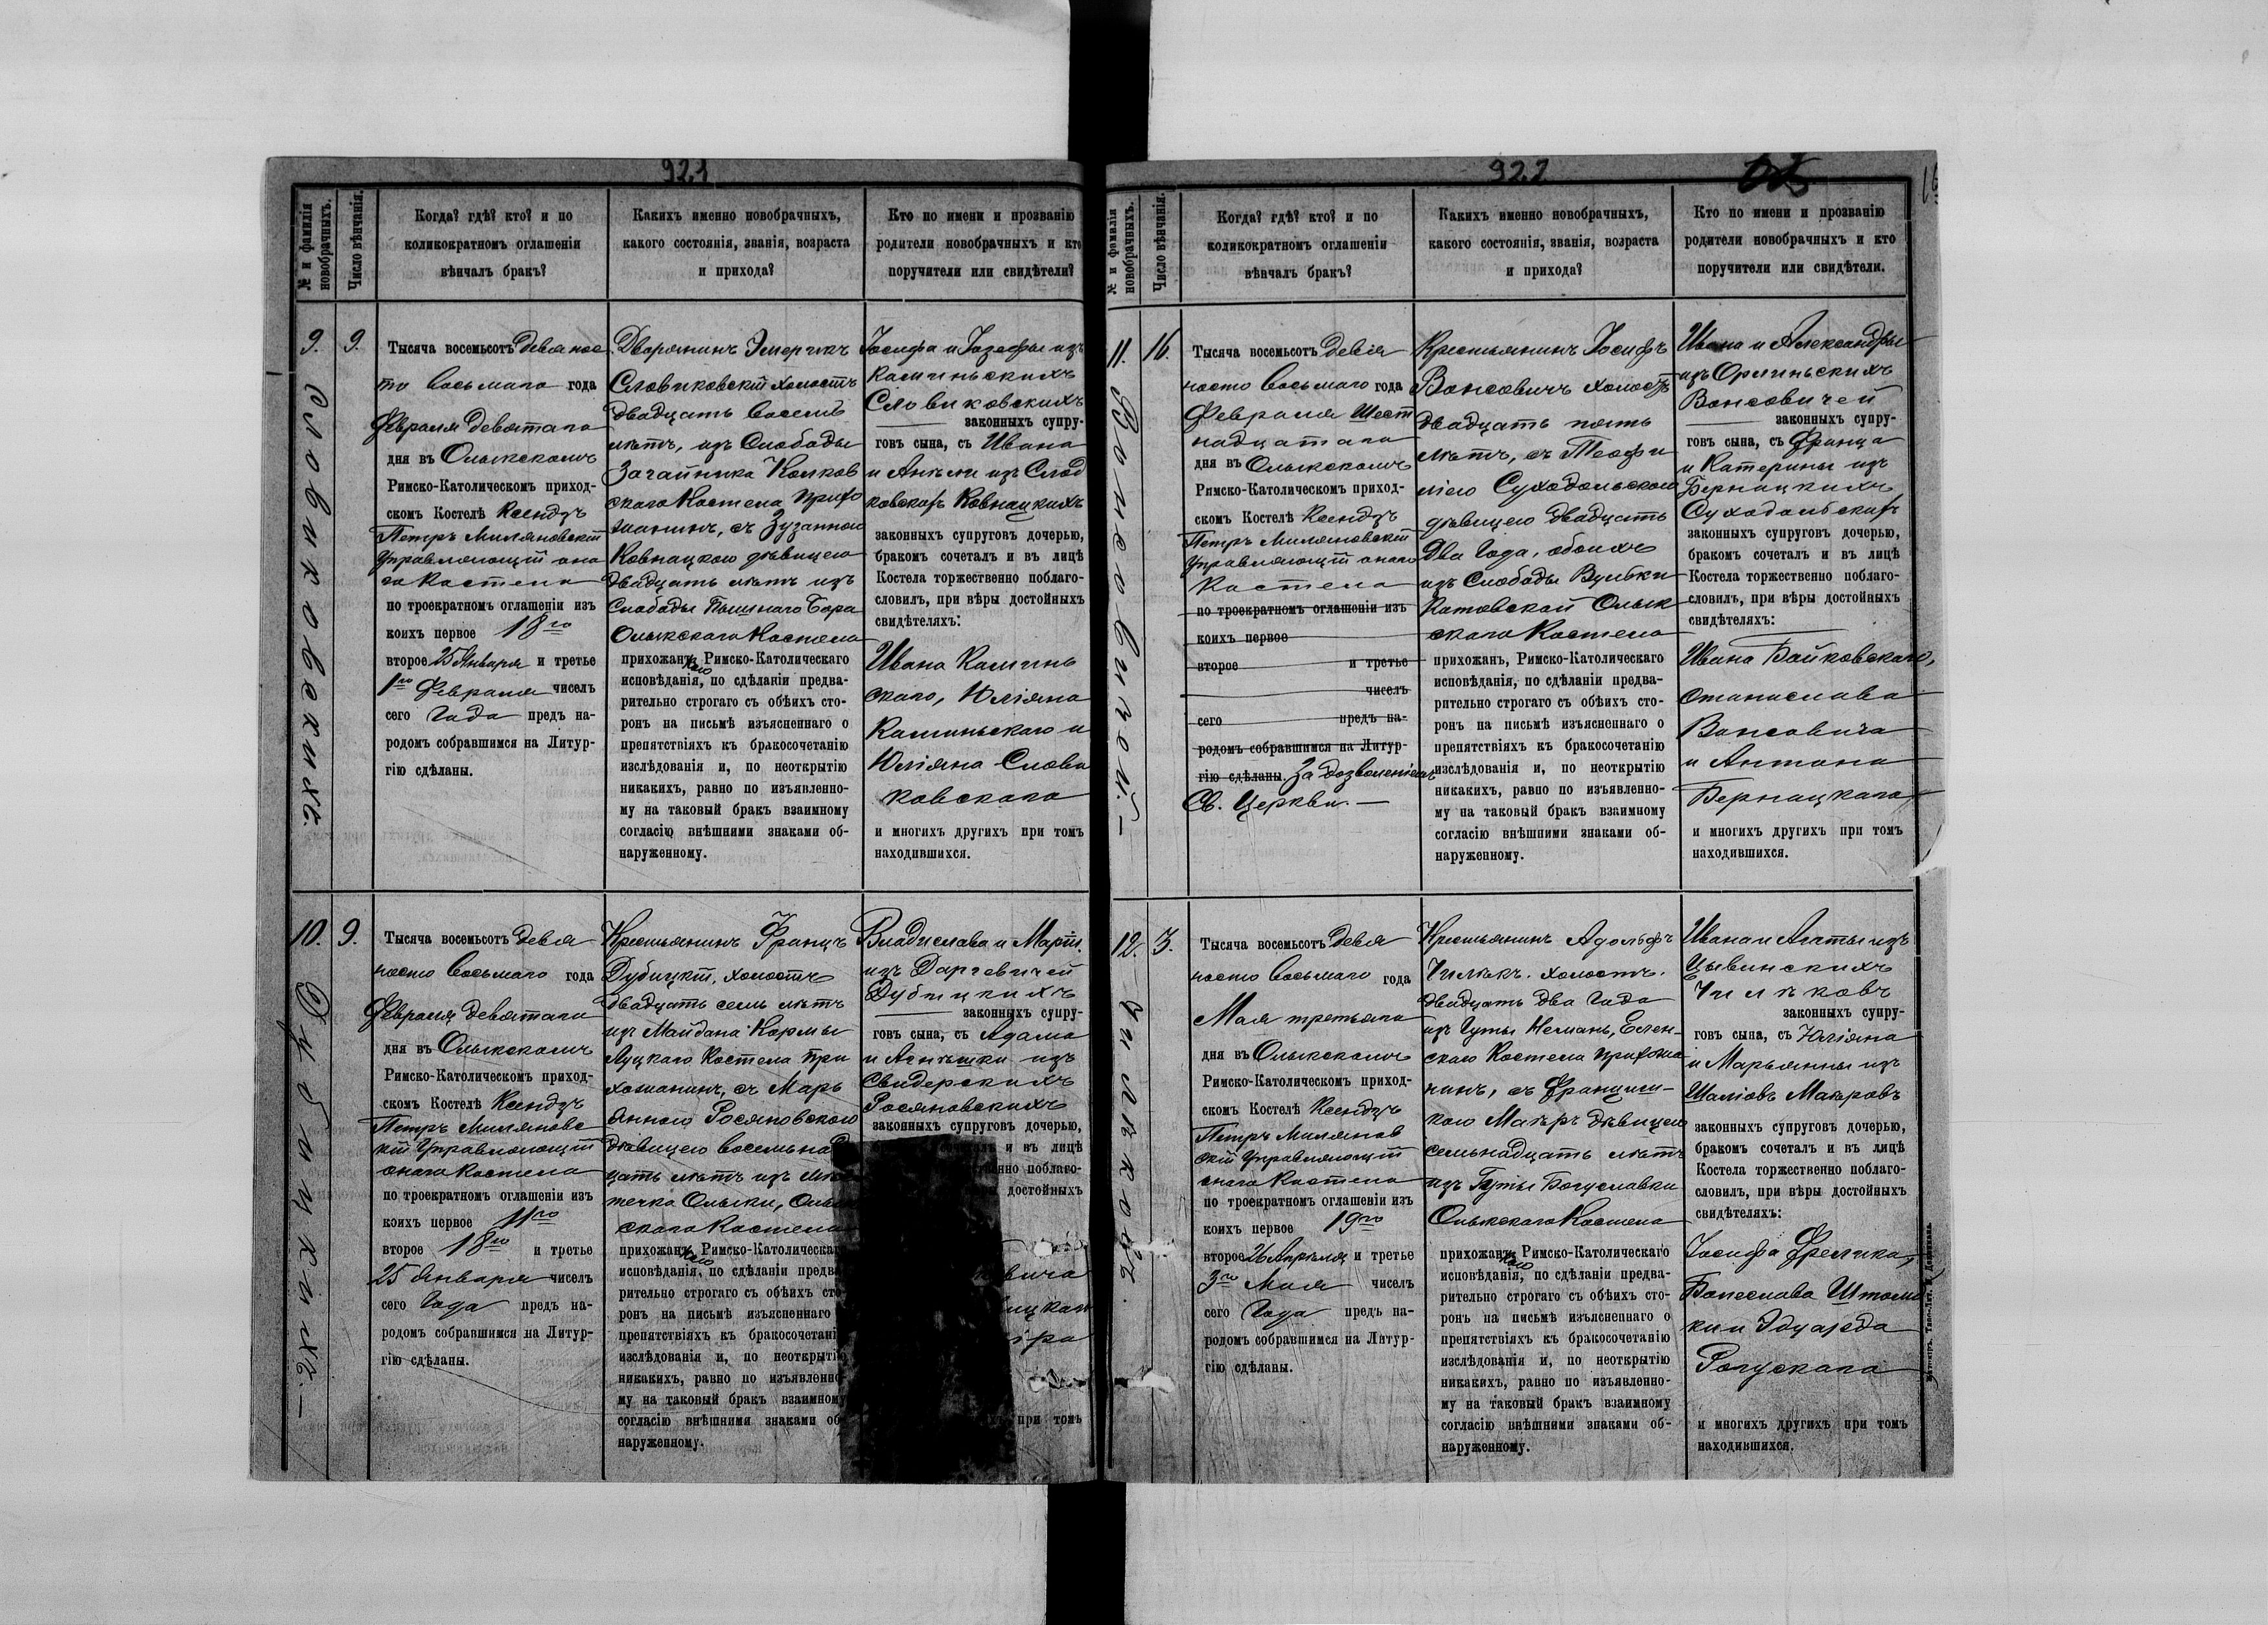 921
№ и фамилія новобрачныхъ.
Число вѣнчанія.
Когда? гдѣ? кто? и по
коликократномъ оглашеніи
вѣнчалъ бракъ?
Какихъ именно новобрачныхъ,
какого состоянія, званія, возраста
и прихода?
Кто по имени и прозванію
родители новобрачныхъ и кто
поручители или свидѣтели?
9.
Словиковскихъ.
9.
Тысяча восемьсотъ девянос
то восьмаго года
Февраля девятаго
дня въ Олыкскомъ
Римско-Католическомъ приход-
скомъ Костелѣ Ксендзъ
Петръ Миляновскій
Управляющій она
го Костела
по троекратномъ оглашеніи изъ
коихъ первое 18го
второе 25 Января и третье
1го Февраля чиселъ
сего Года предъ на-
родомъ собравшимся на Литур-
гію сдѣланы.
Дворянинъ Эмерикъ
Словиковскій холостъ
двадцать восемь
лѣтъ, изъ Слободы
Загайника Колков
скаго Костела прихо
жанинъ, съ Зузанною
Ковнацкою дѣвицею
двадцать лѣтъ изъ
Слободы Пышнаго Бора
Олыкскаго Костела
прихожанкою Римско-Католическаго
исповѣданія, по сдѣланіи предва-
рительно строгаго съ обѣихъ сто-
ронъ на письмѣ изъясненнаго о
препятствіяхъ къ бракосочетанію
изслѣдованія и, по неоткрытію
никакихъ, равно по изъявленно-
му на таковый бракъ взаимному
согласію внѣшними знаками об-
наруженному.
Іосифа и Іозефы изъ
Каминьскихъ
Словиковскихъ
законныхъ супру-
говъ сына, съ Ивана
и Анѣли изъ Слод
ковскихъ Ковнацкихъ
законныхъ супруговъ дочерью,
бракомъ сочеталъ и въ лицѣ
Костела торжественно поблаго-
словилъ, при вѣры достойныхъ
свидѣтеляхъ:
Ивана Каминь
скаго, Юліяна
Каминьскаго и
Юліяна Слови
ковскаго
и многихъ другихъ при томъ
находившихся.
10.
Дубицкихъ.—
9.
Тысяча восемьсотъ девя
носто восьмаго года
Февраля девятаго
дня въ Олыкскомъ
Римско-Католическомъ приход-
скомъ Костелѣ Ксендзъ
Петръ Миляновс
кій Управляющій
онаго Костела
по троекратномъ оглашеніи изъ
коихъ первое 11го
второе 18го и третье
25 Января чиселъ
сего Года предъ на-
родомъ собравшимся на Литур-
гію сдѣланы.
Крестьянинъ Францъ
Дубицкій, холостъ
двадцать семь лѣтъ
изъ Майдана Кормы
Луцкаго Костела при
хожанинъ, съ Марь
янною Росяновскою
дѣвицею восемьнад
цать лѣтъ изъ Мѣс
течка Олыки, Олык
скаго Костела
прихожанкою Римско-Католическаг
исповѣданія, по сдѣланіи предва
рительно строгаго съ обѣихъ сто
ронъ на письмѣ изъясненнаго
препятствіяхъ къ бракосочетані
изслѣдованія и, по неоткрытію
никакихъ, равно по изъявленно
му на таковый бракъ взаимному
согласію внѣшними знаками об
наруженному.
Владислава и Маріи
изъ Даргевичей
Дубицкихъ
законныхъ супру-
говъ сына, съ Адама
и Агнѣшки изъ
Свидерскихъ
Росяновскихъ
законныхъ супруговъ дочерью,
и въ лицѣ
поблаго-
достойныхъ
вича
при томъ
922
№ и фамилія новобрачныхъ.
Число вѣнчанія.
Когда? гдѣ? кто? и по
коликократномъ оглашеніи
вѣнчалъ бракъ?
Какихъ именно новобрачныхъ,
какого состоянія, званія, возраста
и прихода?
Кто по имени и прозванію
родители новобрачныхъ и кто
поручители или свидѣтели.
11.
Вонсовичей.—
16.
Тысяча восемьсотъ девя
носто восьмаго года
Февраля шест
надцатаго
дня въ Олыкскомъ
Римско-Католическомъ приход-
скомъ Костелѣ Ксендзъ
Петръ Миляновскій
Управляющій онаго
Костела
по троекратномъ оглашеніи изъ
коихъ первое
второе и третье
чиселъ
сего предъ на-
родомъ собравшимся на Литур-
гію сдѣланы. За дозволеніемъ
Св. Церкви.—
Крестьянинъ Іосифъ
Вонсовичъ холостъ
двадцать пять
лѣтъ, съ Теофи
лією Суходольскою
дѣвицею двадцать
два года, обоихъ
изъ Слободы Вульки
Котовской Олык
скаго Костела
прихожанъ, Римско-Католическаго
исповѣданія, по сдѣланіи предва-
рительно строгаго съ обѣихъ сто-
ронъ на письмѣ изъясненнаго о
препятствіяхъ къ бракосочетанію
изслѣдованія и, по неоткрытію
никакихъ, равно по изъявленно-
му на таковый бракъ взаимному
согласію внѣшними знаками об-
наруженному.
Ивана и Александры
изъ Орлиньскихъ
Вонсовичей
законныхъ супру-
говъ сына, съ Франца
и Катерины изъ
Бернацкихъ
Суходольскихъ
законныхъ супруговъ дочерью,
бракомъ сочеталъ и въ лицѣ
Костела торжественно поблаго-
словилъ, при вѣры достойныхъ
свидѣтеляхъ:
Ивана Байковскаго,
Станислава
Вонсовича
и Антона
Бернацкаго
и многихъ другихъ при томъ
находившихся.
12.
Чилѣковъ.
3.
Тысяча восемьсотъ девя
носто восьмаго года
Мая третьяго
дня въ Олыкскомъ
Римско-Католическомъ приход-
скомъ Костелѣ Ксендзъ
Петръ Милянов
скій Управляющій
онаго Костела
по троекратномъ оглашеніи изъ
коихъ первое 19го
второе 26 Апрѣля и третье
3го Мая чиселъ
сего Года предъ на-
родомъ собравшимся на Литур-
гію сдѣланы.
Крестьянинъ Адольфъ
Чилѣкъ. холостъ.
двадцать два года
изъ Гуты Немань,
скаго Костела прихожа
нинъ, съ Францишъ-
кою Маѣръ дѣвицею
семьнадцать лѣтъ
изъ Гуты Богуславки
Олыкскаго Костела
прихожанкою Римско-Католическаго
исповѣданія, по сдѣланіи предва-
рительно строгаго съ обѣихъ сто-
ронъ на письмѣ изъясненнаго о
препятствіяхъ къ бракосочетанію
изслѣдованія и, по неоткрытію
никакихъ, равно по изъявленно-
му на таковый бракъ взаимному
согласію внѣшними знаками об-
наруженному.
Ивана и Агаты изъ
Цывинскихъ
Чилѣковъ
законныхъ супру-
говъ сына, съ Юліяна
и Марьянны изъ
Шаліовъ Маѣровъ
законныхъ супруговъ дочерью,
бракомъ сочеталъ и въ лицѣ
Костела торжественно поблаго-
словилъ, при вѣры достойныхъ
свидѣтеляхъ:
Іосифа Фрелика,
Болеслава
ки и Эдуарда
Рогускаго
и многихъ другихъ при томъ
находившихся.